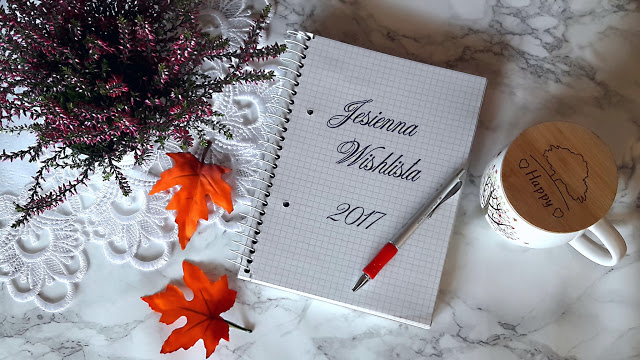 Jesienna
Wishlista
2017
Happy